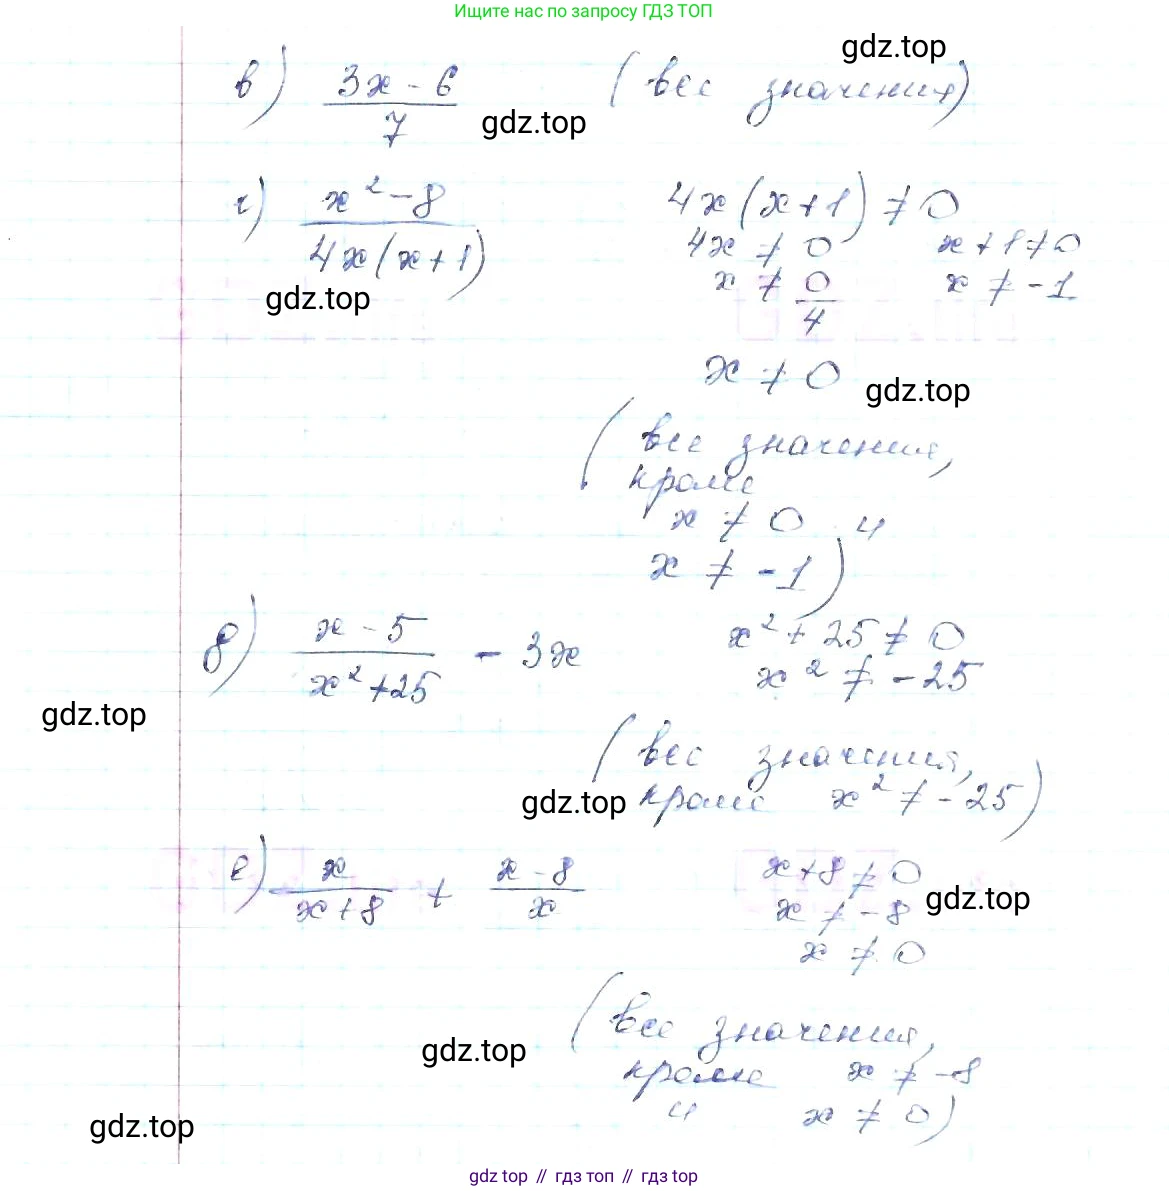 Ищите нас по запросу ГДЗ ТОП
gdz.top
в) (3x - 6)/7 (все значения)
gdz.top
г) (x² - 8)/(4x(x+1)) 4x(x+1) ≠ 0
4x ≠ 0 x+1≠0
x ≠ 0/4 x ≠ -1
gdz.top
x ≠ 0
gdz.top
(все значения,
кроме
x ≠ 0 и
x ≠ -1)
д) (x - 5)/(x²+25) - 3x x² + 25 ≠ 0
x² ≠ -25
gdz.top
(все значения,
кроме x² ≠ -25)
gdz.top
е) x/(x+8) + (x - 8)/x x+8 ≠ 0
x ≠ -8
gdz.top
x ≠ 0
(все значения,
gdz.top
кроме x ≠ -8
и x ≠ 0)
gdz.top
gdz top // гдз топ // гдз top